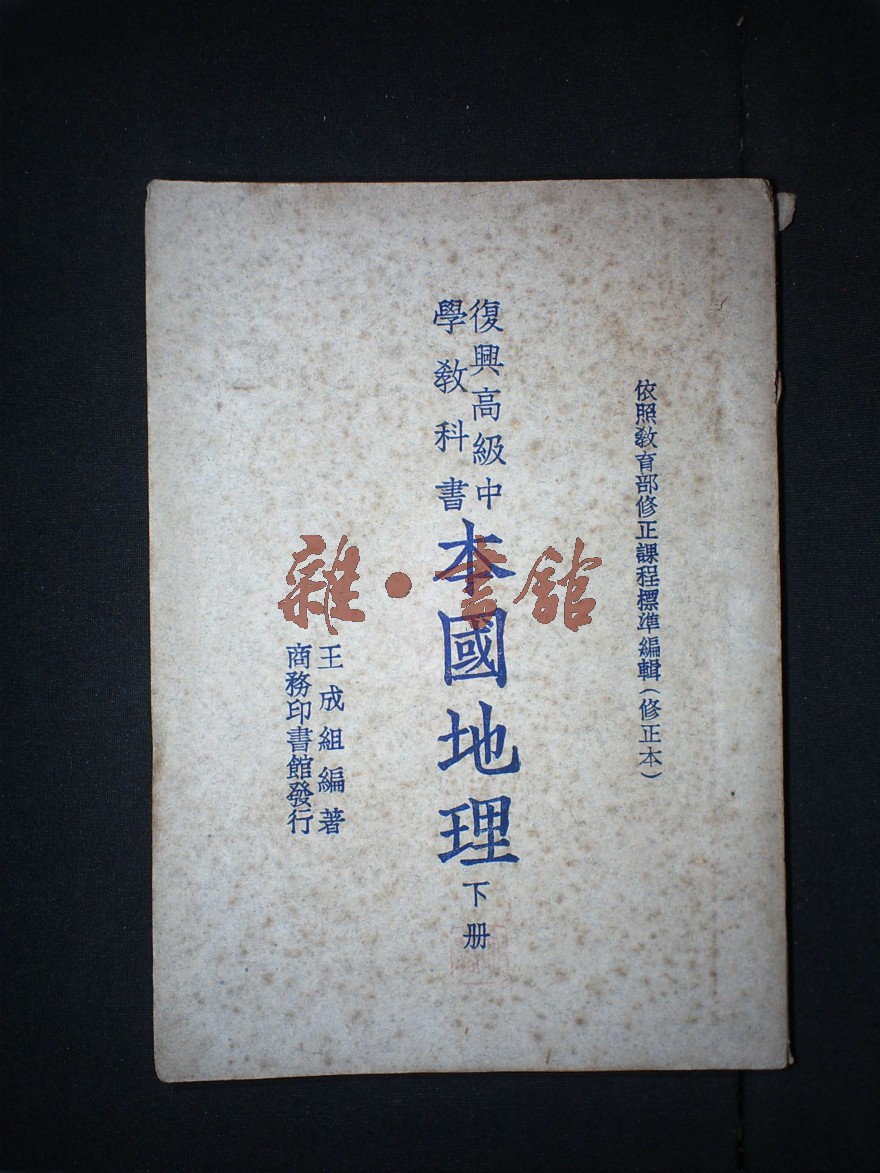 依照教育部修正課程標準編輯（修正本）
復興高級中
學教科書
本國地理 下册
王成組編著
商務印書館發行
雜·書館